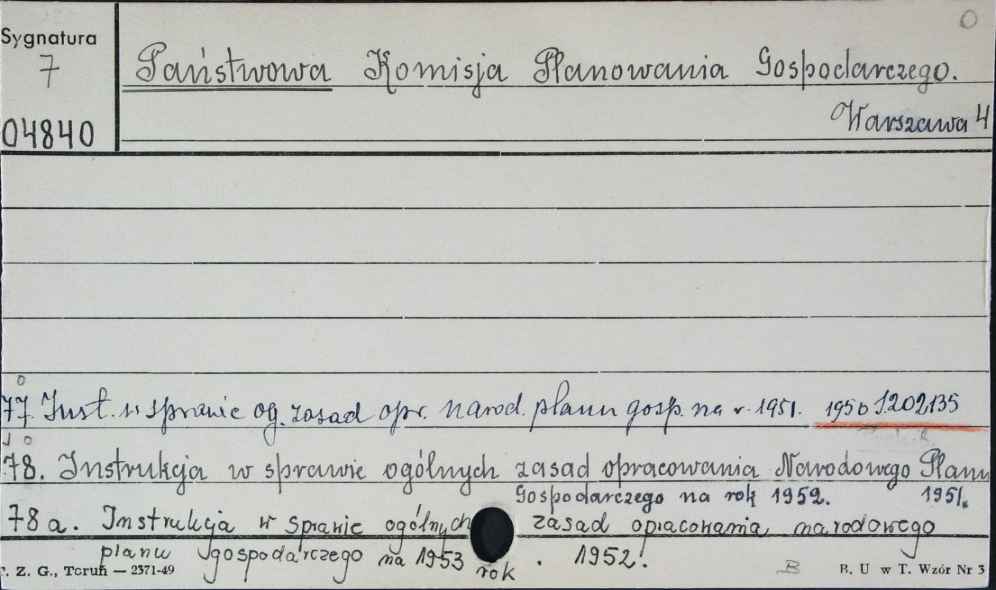 O
Sygnatura
7
04840
Państwowa Komisja Planowania Gospodarczego.
Warszawa 4
77. Inst. w sprawie og. zasad opr. narod. planu gosp. na r. 1951. 1950 J.202135
78. Instrukcja w sprawie ogólnych zasad opracowania Narodowego Planu
Gospodarczego na rok 1952. 1951.
78a. Instrukcja w sprawie ogólnych zasad opracowania narodowego
planu gospodarczego na 1953 rok. 1952.
P. Z. G., Toruń — 2371-49
B
B. U w T. Wzór Nr 3